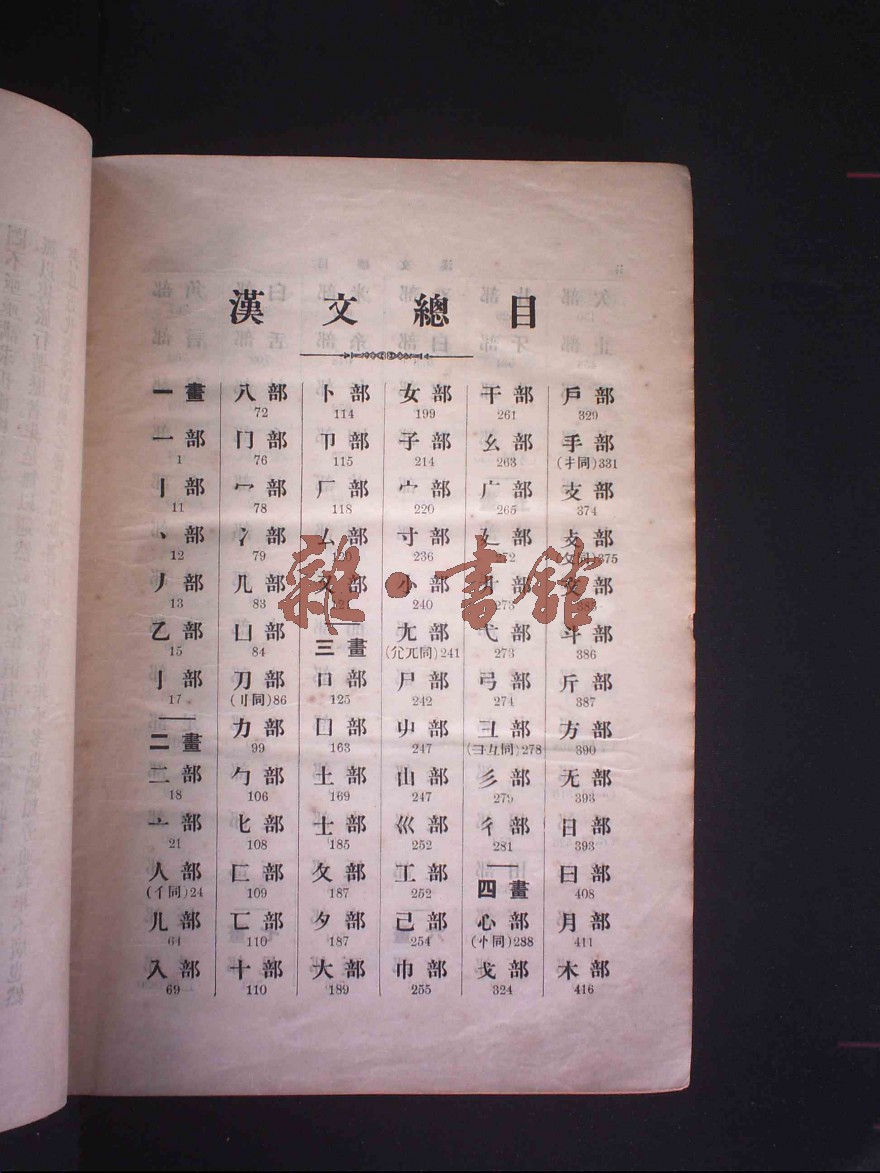 漢文總目
一畫
一部
1
丨部
11
丶部
12
丿部
13
乙部
15
亅部
17
二畫
二部
18
亠部
21
人部
(亻同)24
儿部
64
入部
69
八部
72
冂部
76
冖部
78
冫部
79
几部
83
凵部
84
刀部
(刂同)86
力部
99
勹部
106
匕部
108
匚部
109
匸部
110
十部
110
卜部
114
卩部
115
厂部
118
厶部
120
又部
121
三畫
口部
125
囗部
163
土部
169
士部
185
夂部
187
夕部
187
大部
189
女部
199
子部
214
宀部
220
寸部
236
小部
240
尢部
(尣兀同)241
尸部
242
屮部
247
山部
247
巛部
252
工部
252
己部
254
巾部
255
干部
261
幺部
263
广部
265
廴部
272
廾部
273
弋部
273
弓部
274
彐部
(彐彑同)278
彡部
279
彳部
281
四畫
心部
(忄同)288
戈部
324
戶部
329
手部
(扌同)331
支部
374
攴部
(攵同)375
文部
斗部
386
斤部
387
方部
390
无部
393
日部
393
曰部
408
月部
411
木部
416
雜·書館